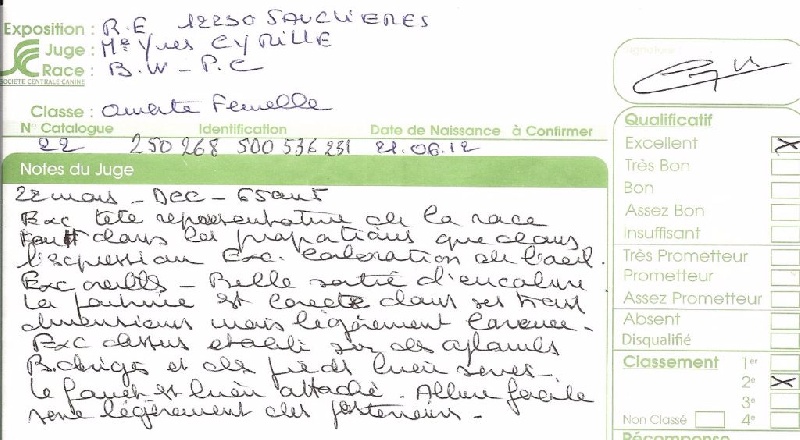 Exposition : R.E 12230 SAUCLIERES
Juge : Mr Yves CYRILLE
SOCIETE CENTRALE CANINE
Race : B.W - P.C
Classe : Ouverte Femelle
Signature
N° Catalogue Identification Date de Naissance à Confirmer
22 250 268 500 536 231 21.06.12
Notes du Juge
22 mois - Dec -
Exc tête représentative de la race
dans les proportions que dans
l'expression Exc. coloration de l'oeil.
Exc oreilles - Belle sortie d'encolure
La poitrine est correcte dans ses trois
dimensions mais légèrement
Exc dessus établi sur des aplombs
et des pieds bien serrés.
Le fouet est bien attaché. Allure facile
serre légèrement des postérieurs.
Qualificatif
Excellent X
Très Bon
Bon
Assez Bon
Insuffisant
Très Prometteur
Prometteur
Assez Prometteur
Absent
Disqualifié
Classement 1er
2e X
3e
Non Classé 4e
Récompense